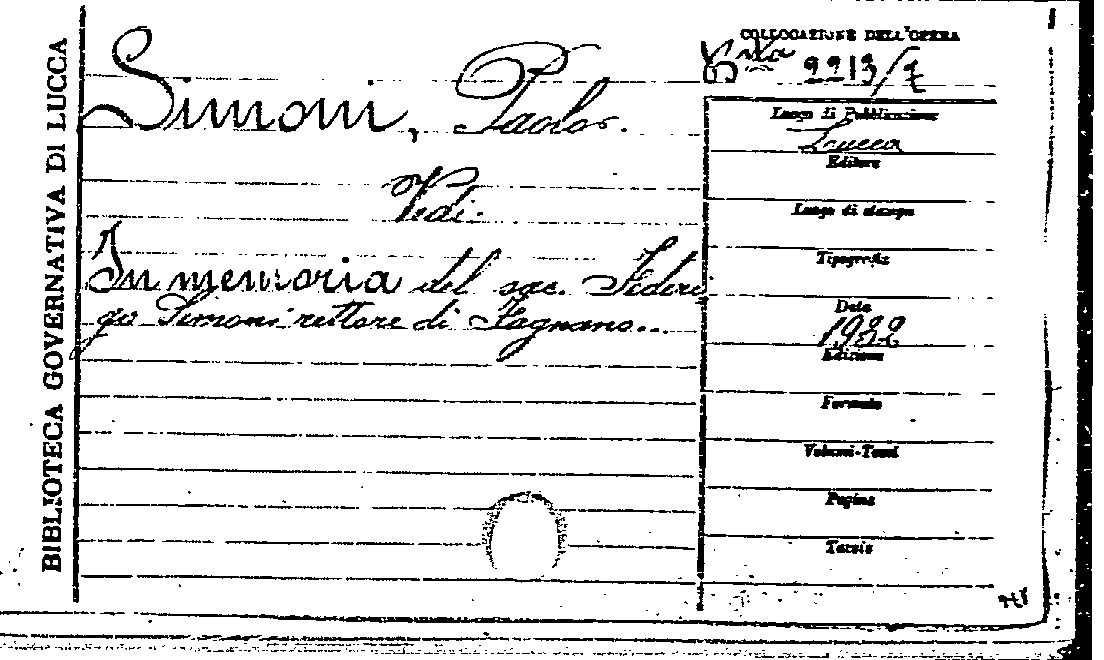 BIBLIOTECA GOVERNATIVA DI LUCCA
COLLOCAZIONE DELL'OPERA
Bta 2213/7
Simoni, Paolo.
Vedi.
In memoria del sac. Federi
go Simoni rettore di Fagnano...
Luogo di Pubblicazione
Lucca
Editore
Luogo di stampa
Tipografia
Data
1922
Edizione
Formato
Volumi-Tomi
Pagine